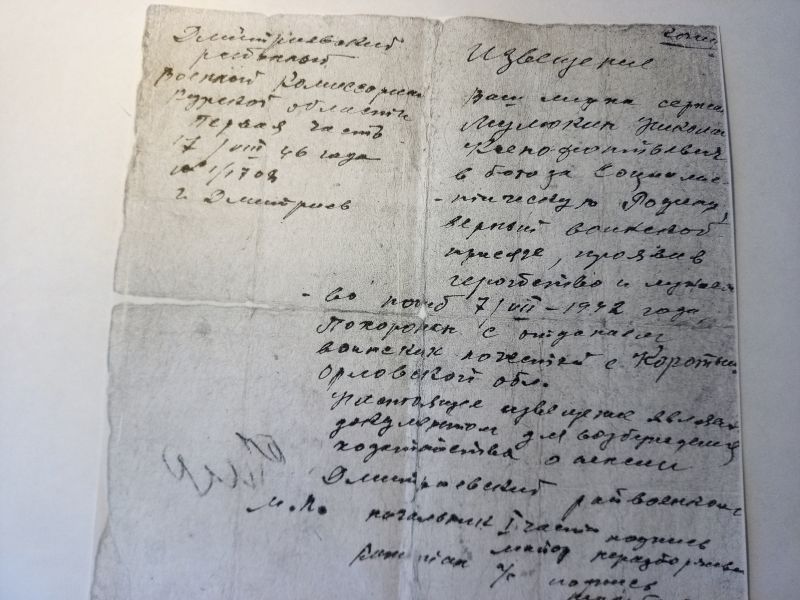 Дмитриевский
районный
Военный Комиссариат
Курской области
первая часть
17/VIII 46 года
№ 1/1702
г. Дмитриев
Копия
Извещение
Ваш мужа сержа
Мулюкин Никола
Ксенофонтьевич
в бою за Социалис-
-тическую Родину,
верный воинской
присяге, проявив
геройство и мужест
-во погиб 7/VII - 1942 года
Похоронен с отданием
воинских почестей с. Коротыш
Орловской обл.
Настоящее извещение являет
документом для возбуждения
ходатайства о пенсии
Дмитриевский райвоенком
М.П. начальник I части подпись
майор неразборчиво
Капитан а/с подпись